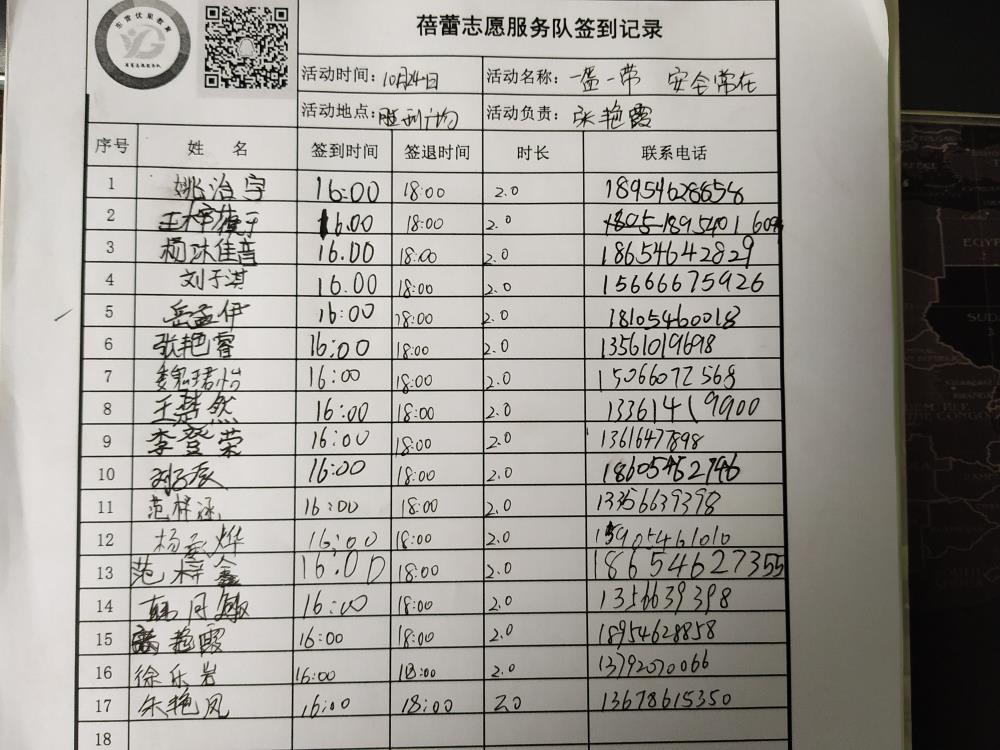 蓓蕾志愿服务队签到记录
活动时间：10月24日 活动名称：一盔一带 安全常在
活动地点： 活动负责：张艳霞
序号 姓 名 签到时间 签退时间 时长 联系电话
1 姚治宇 16:00 18:00 2.0 18954628658
2 16.00 18:00 2.0
3 16.00 18:00 2.0 18654642829
4 刘于淇 16.00 18:00 2.0 15666675926
5 岳孟伊 16:00 18:00 2.0 18105460018
6 张艳睿 16:00 18:00 2.0 13561019698
7 魏珺怡 16:00 18:00 2.0 15066072568
8 王楚然 16:00 18:00 2.0 13361419900
9 李登荣 16:00 18:00 2.0 13616477898
10 16:00 18:00 2.0 18605462746
11 范梓涵 16:00 18:00 2.0 13356639398
12 16:00 18:00 2.0 15905461010
13 范梓鑫 16:00 18:00 2.0 18654627355
14 16:00 18:00 2.0 1356639398
15 艳霞 16:00 18:00 2.0 18954628858
16 徐乐岩 16:00 18:00 2.0 13792070066
17 朱艳凤 16:00 18:00 2.0 13678615350
18